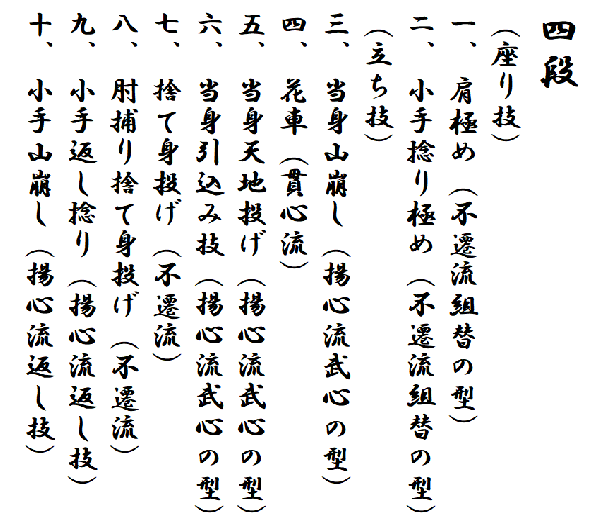 四段
(座り技)
一、肩極め(不遷流組替の型)
二、小手捻り極め(不遷流組替の型)
(立ち技)
三、当身山崩し(揚心流武心の型)
四、花車(貫心流)
五、当身天地投げ(揚心流武心の型)
六、当身引込み技(揚心流武心の型)
七、捨て身投げ(不遷流)
八、肘捕り捨て身投げ(不遷流)
九、小手返し捻り(揚心流返し技)
十、小手山崩し(揚心流返し技)